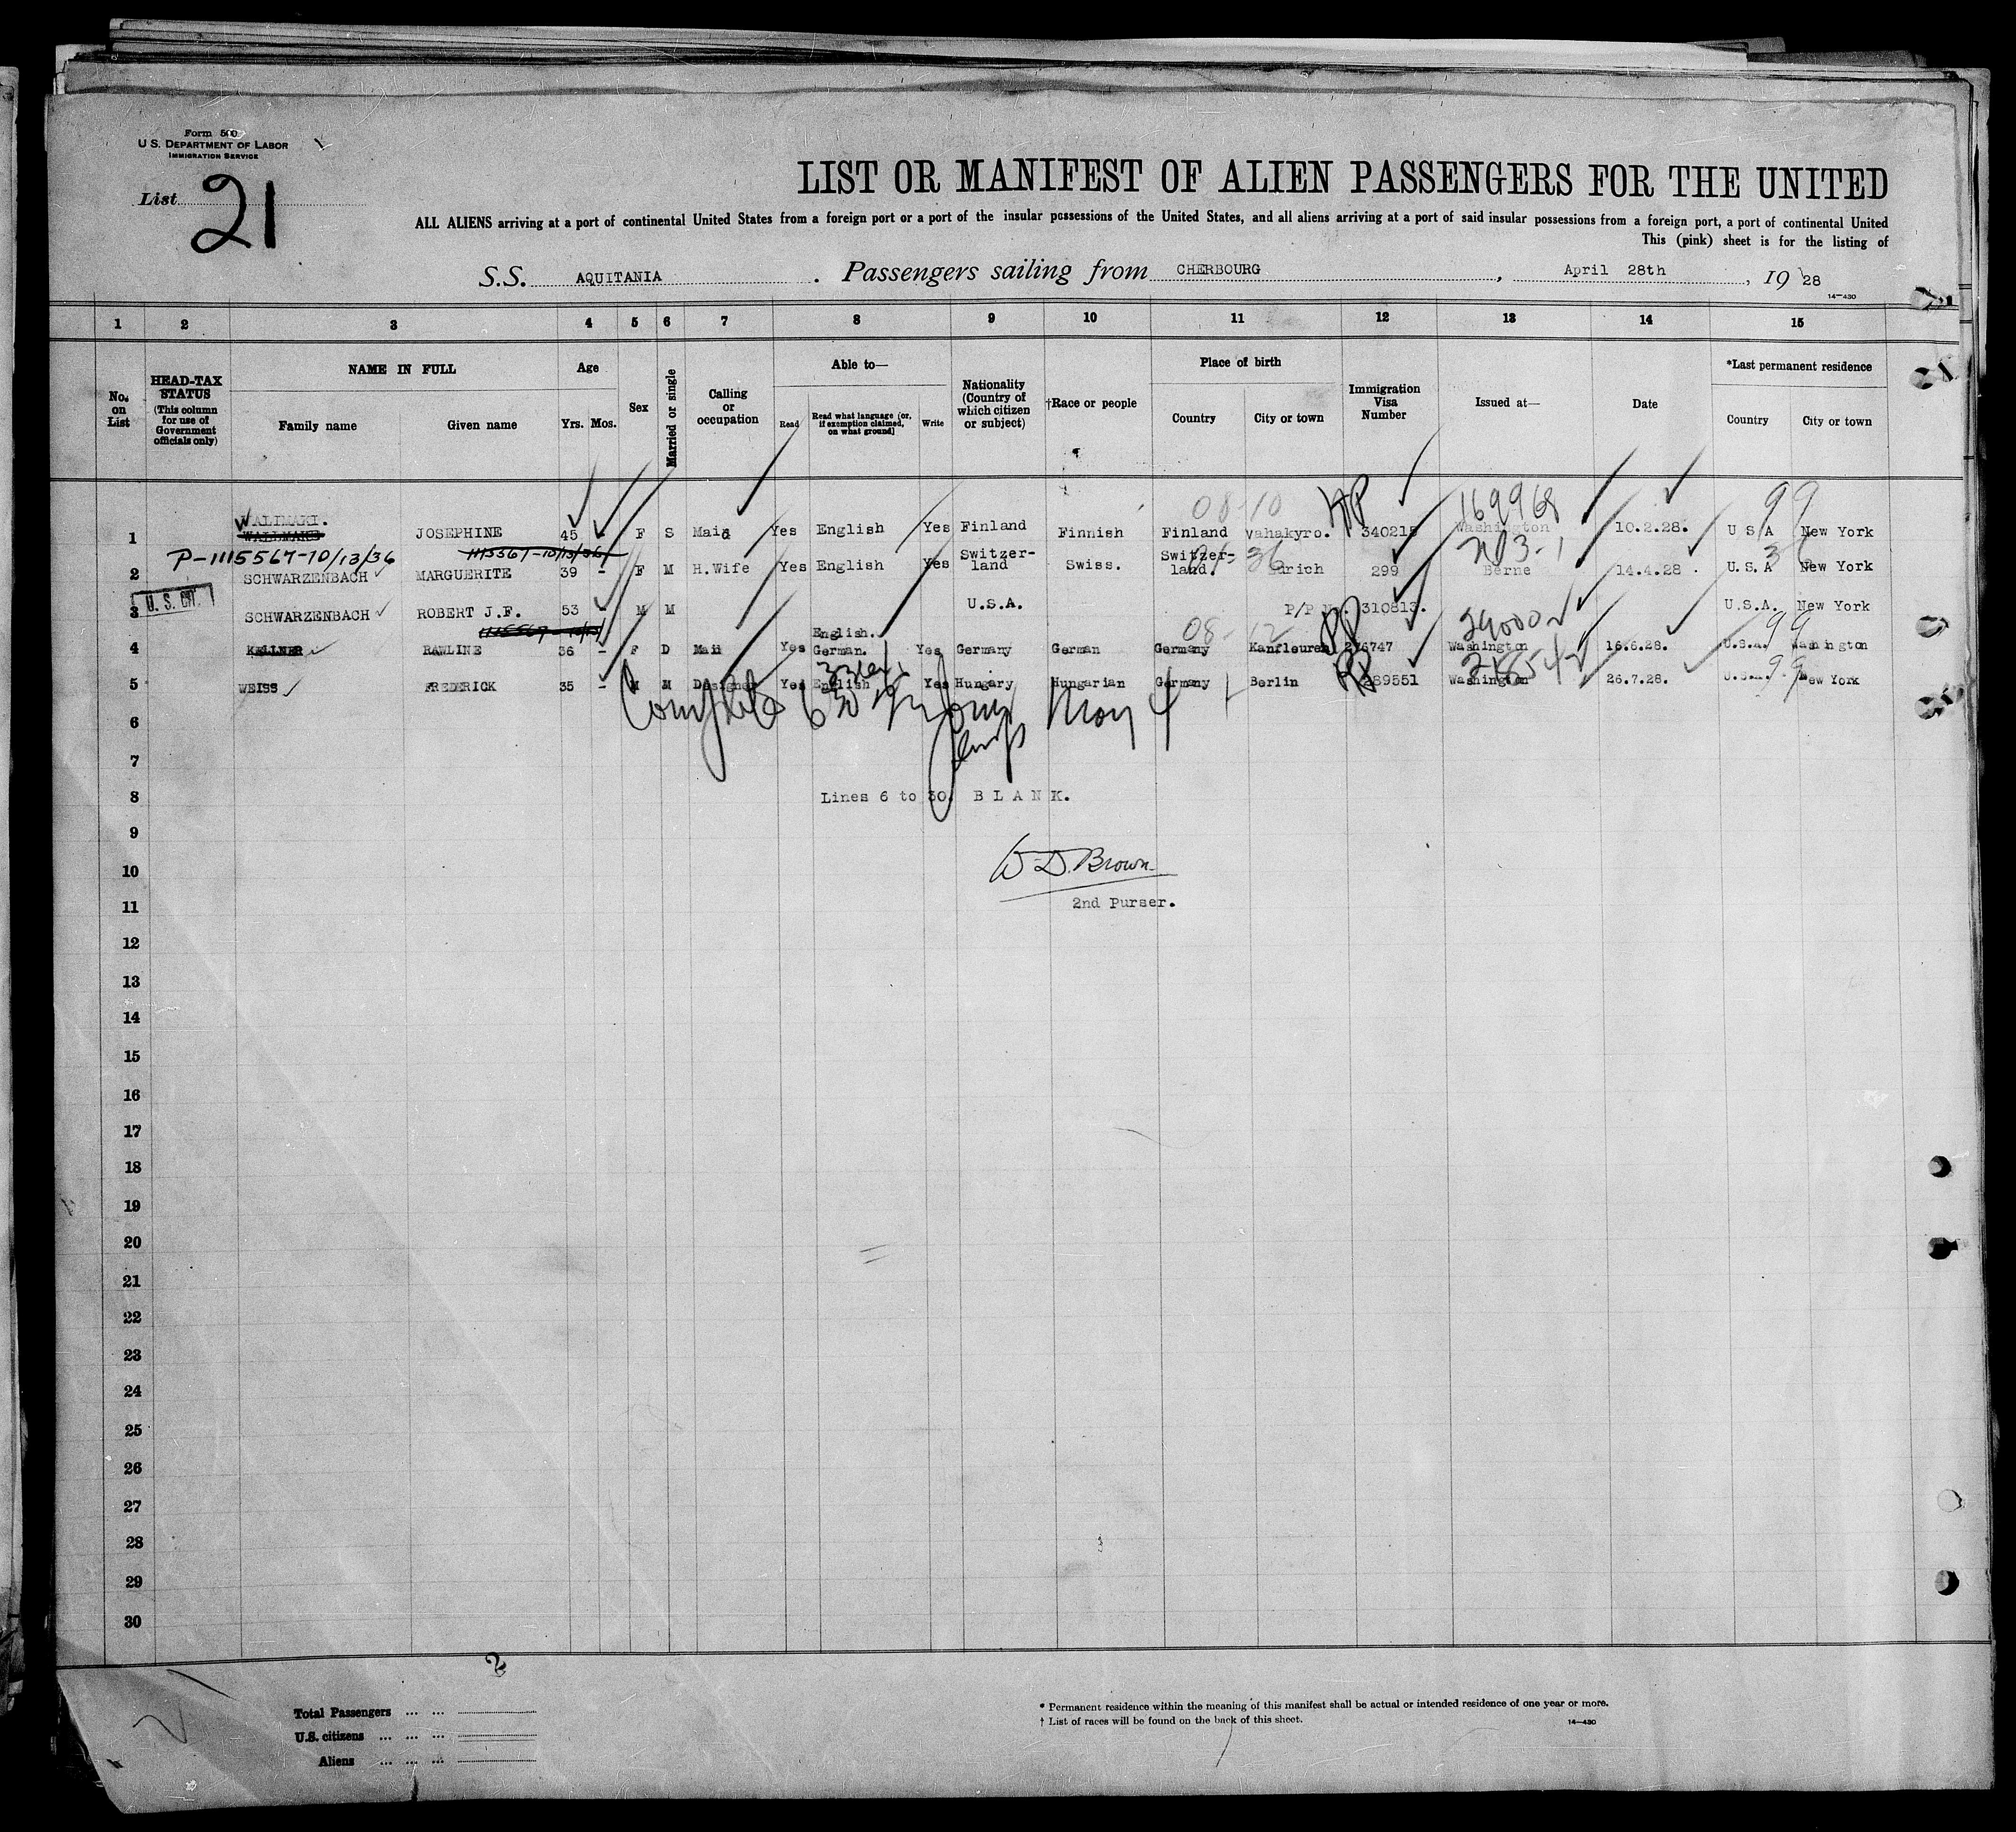 Form 500
U. S. DEPARTMENT OF LABOR
IMMIGRATION SERVICE
List 21
LIST OR MANIFEST OF ALIEN PASSENGERS FOR THE UNITED
ALL ALIENS arriving at a port of continental United States from a foreign port or a port of the insular possessions of the United States, and all aliens arriving at a port of said insular possessions from a foreign port, a port of continental United
This (pink) sheet is for the listing of
S.S. AQUITANIA . Passengers sailing from CHERBOURG , April 28th , 19 28
14—430
1 2 3 4 5 6 7 8 9 10 11 12 13 14 15
No. on List
HEAD-TAX STATUS (This column for use of Government officials only)
NAME IN FULL
Family name Given name
Age
Yrs. Mos.
Sex
Married or single
Calling or occupation
Able to—
Read Read what language [or, if exemption claimed, on what ground] Write
Nationality (Country of which citizen or subject)
†Race or people
Place of birth
Country City or town
Immigration Visa Number
Issued at—
Date
*Last permanent residence
Country City or town
08-10 NP 169968 99
1 JOSEPHINE 45 F S Maid Yes English Yes Finland Finnish Finland Vahakyro. 340215 Washington 10.2.28. U S A New York
P-1115567-10/13/36 1115567-10/13/36
2 SCHWARZENBACH MARGUERITE 39 - F M H.Wife Yes English Yes Switzer-land Swiss. Switzer-land. Zurich 299 Berne 14.4.28. U.S.A New York
U. S. CIT.
3 SCHWARZENBACH ROBERT J.F. 53 - M M U.S.A. P/P N. 310813. U.S.A. New York
08-12 99
4 KELLNER 36 - F D Maid Yes English. German. Yes Germany German Germany Washington 16.6.28. U.S.A. Washington
99
5 WEISS FREDERICK 35 - M M Designer Yes English Yes Hungary Hungarian Germany Berlin 289551 Washington 26.7.28. U.S.A. New York
6
7
8 Lines 6 to 30. B L A N K.
9
10 W D. Brown
11 2nd Purser.
12
13
14
15
16
17
18
19
20
21
22
23
24
25
26
27
28
29
30
2
Total Passengers ... ...
U.S. citizens ... ... ...
Aliens ... ... ...
* Permanent residence within the meaning of this manifest shall be actual or intended residence of one year or more.
† List of races will be found on the back of this sheet.
14—430